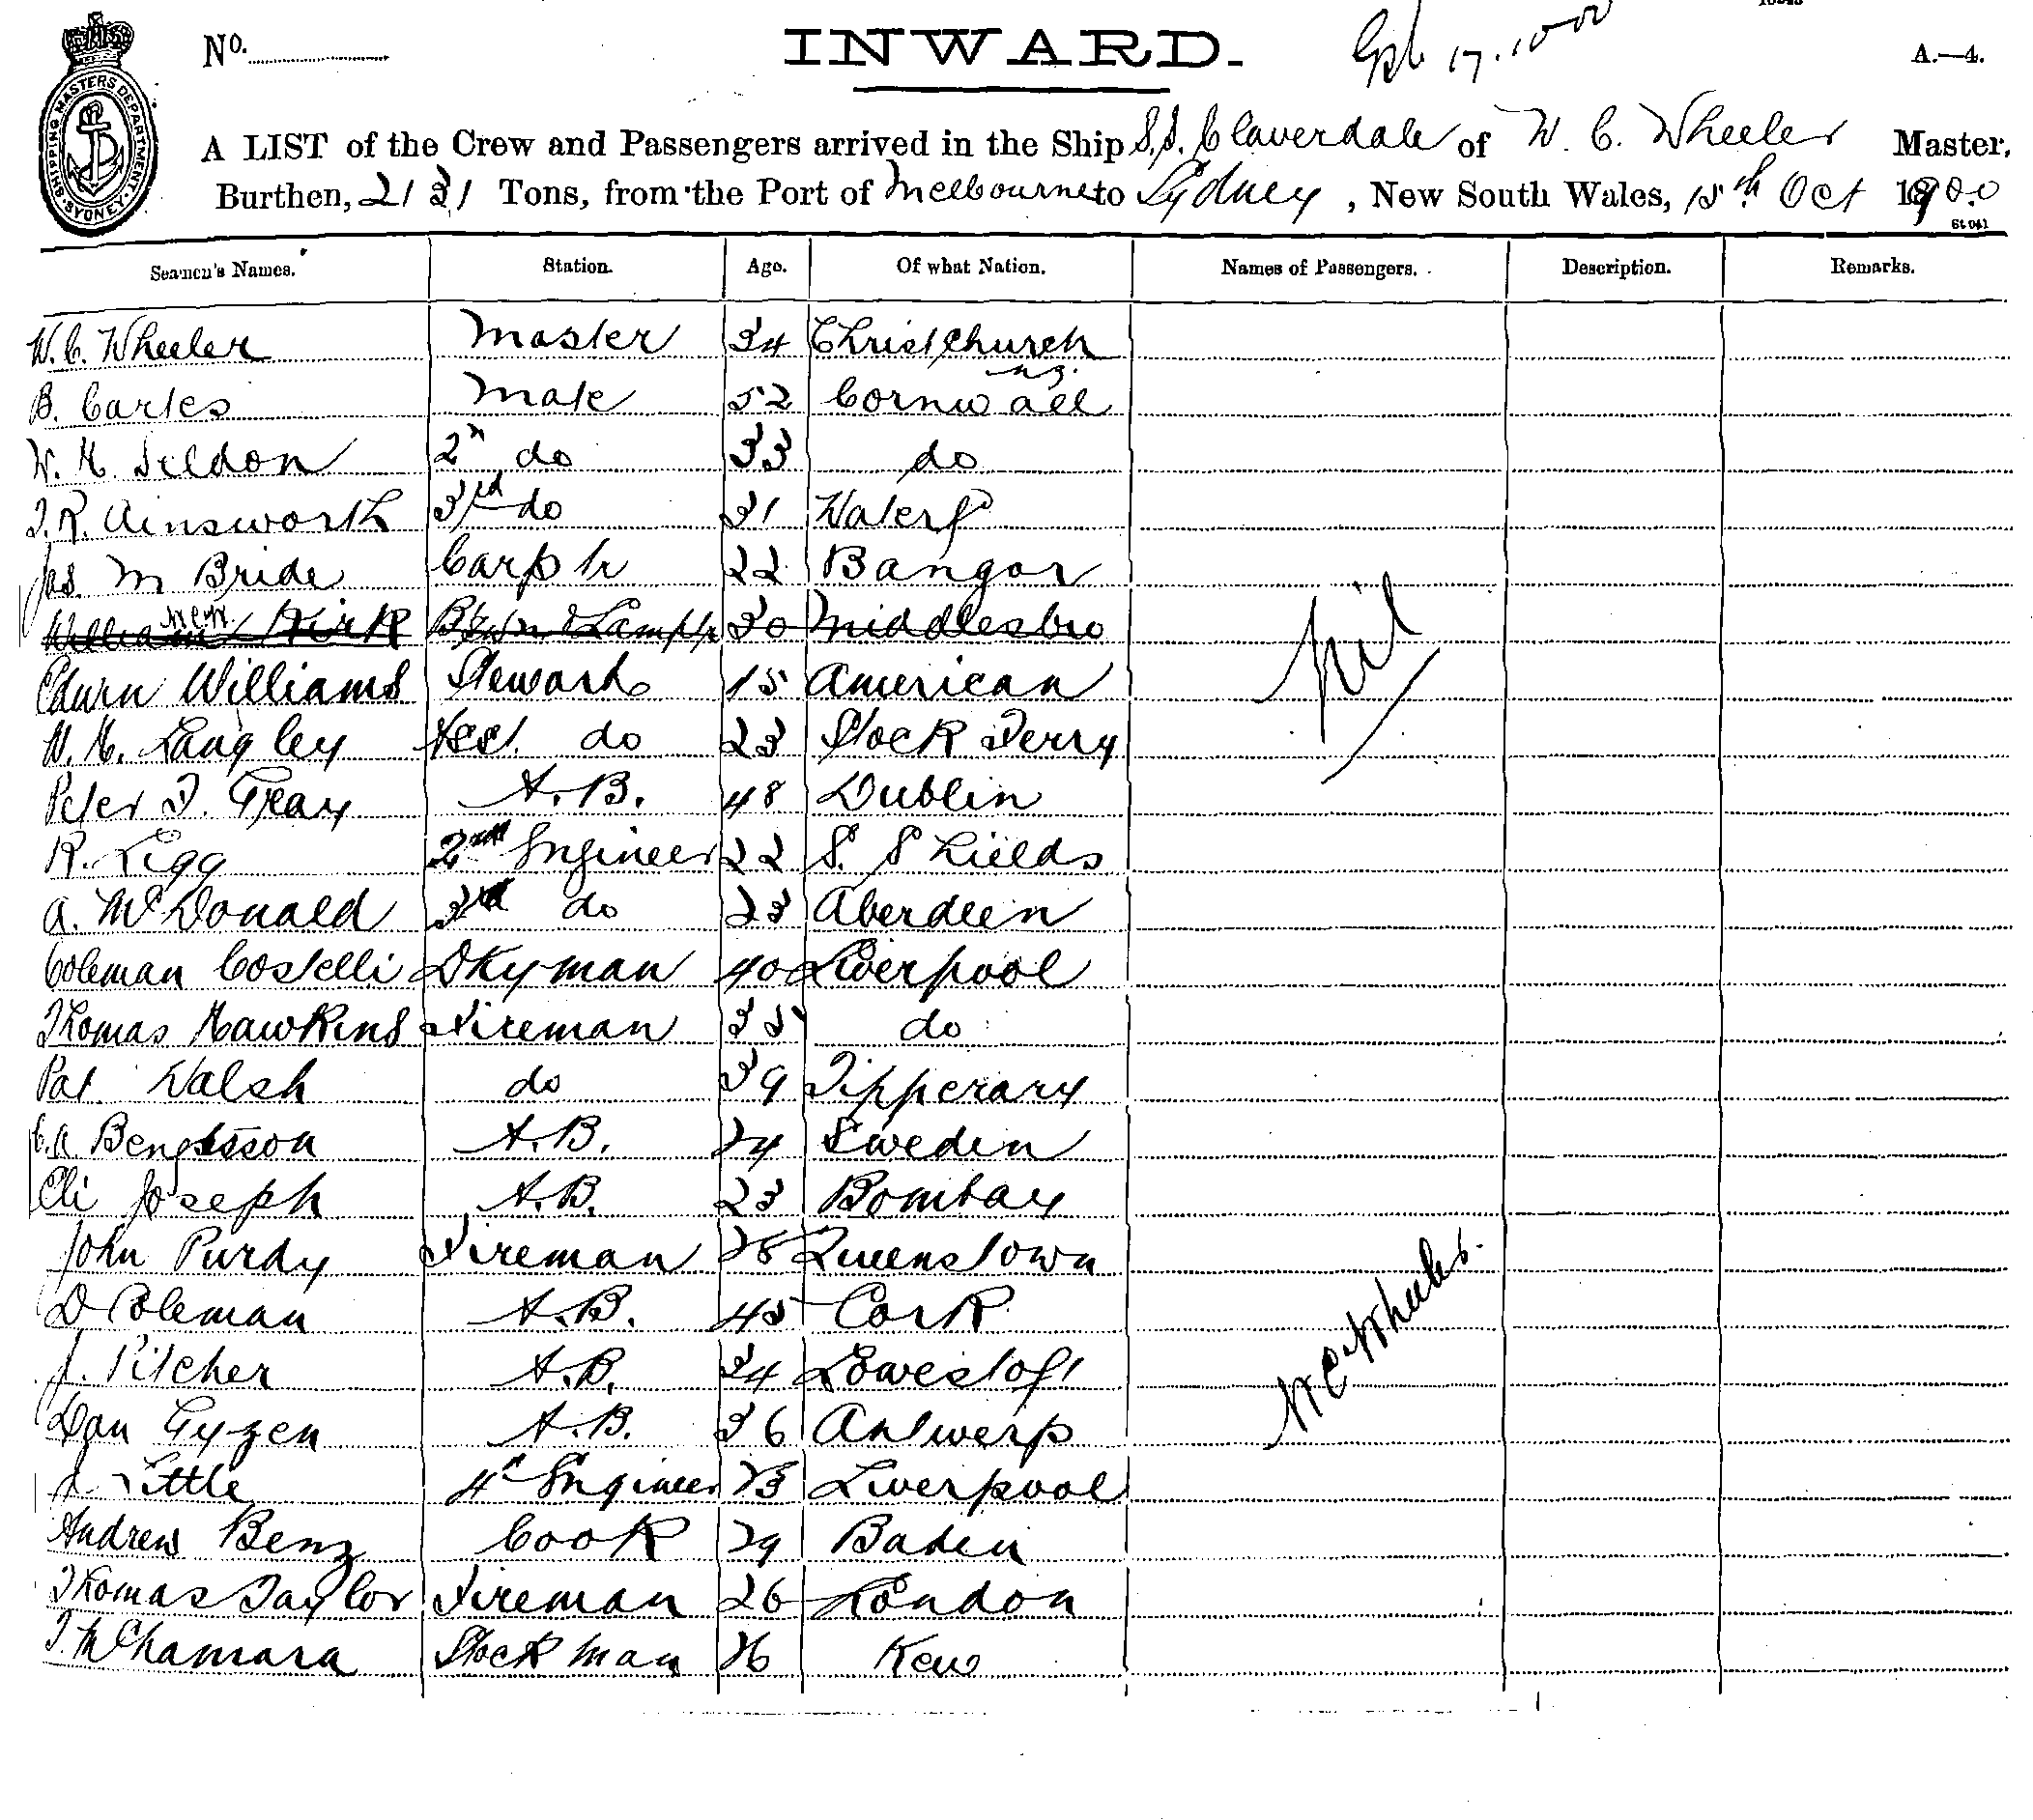 No.
INWARD.
A.—4.
SHIPPING MASTERS DEPARTMENT. SYDNEY.
A LIST of the Crew and Passengers arrived in the Ship S.S. Claverdale of W. C. Wheeler Master,
Burthen, 2131 Tons, from the Port of Melbourne to Sydney, New South Wales, 15th Oct 1900
Seamen's Names. Station. Age. Of what Nation. Names of Passengers. Description. Remarks.
W. C. Wheeler Master 34 Christchurch
B. Carles Mate 52 Cornwall
W. H. Seldon 2n do 33 do
T. R. Ainsworth 3rd do 31 Waterfd
Jas. Mc Bride Carp tr 22 Bangor
William Kirk 30 Middlesbro
nil
Edwin Williams Steward 15 American
W. H. Langley Asst. do 23 Stock Ferry
Peter T. Gray A.B. 48 Dublin
R. Legg 2nd Engineer 22 S. Shields
A. McDonald 3rd do 23 Aberdeen
Coleman Costelli Dkyman 40 Liverpool
Thomas Hawkins Fireman 35 do
Pat. Walsh do 39 Tipperary
C. A. Bengtsson A.B. 24 Sweden
Eli Joseph A.B. 23 Bombay
John Purdy Fireman 28 Queenstown
D Coleman A.B. 45 Cork
J. Pitcher A.B. 34 Lowestoft
W C Wheeler.
Dan Gyzen A.B. 36 Antwerp
J. Little 4th Engineer 23 Liverpool
Andrew Benz Cook 29 Baden
Thomas Taylor Fireman 26 London
T. McNamara Stock man 26 Kew